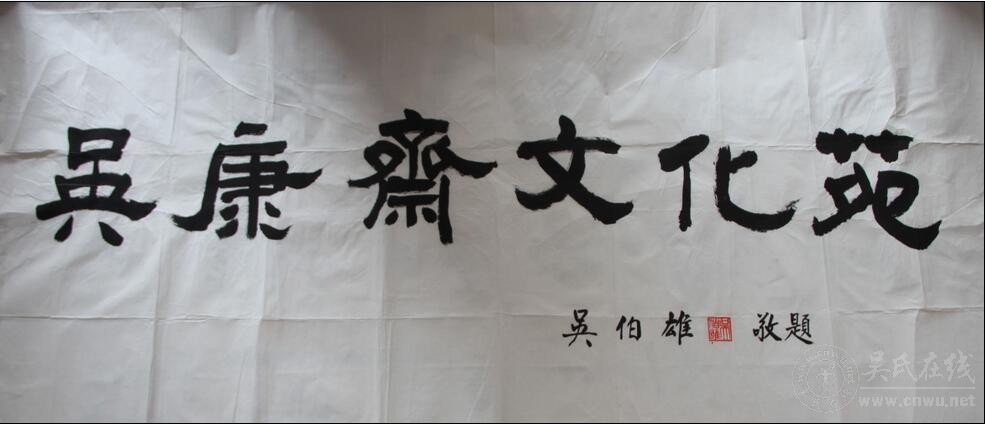 吳康齋文化苑
吳伯雄 敬題
吴氏在线
www.cnwu.net